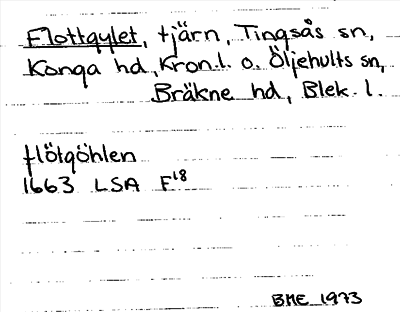 Flottgylet, tjärn, Tingsås sn,
Konga hd, Kron.l. o. Öljehults sn,
Bräkne hd, Blek. l.
flötgöhlen
1663 LSA F18
BME 1973